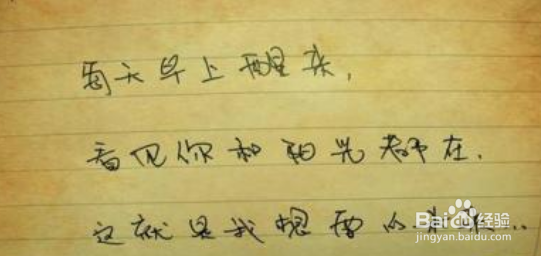 每天早上醒来，
看见你和阳光都在，
这就是我想要的未来..
Baidu经验
jingyan.baidu.com